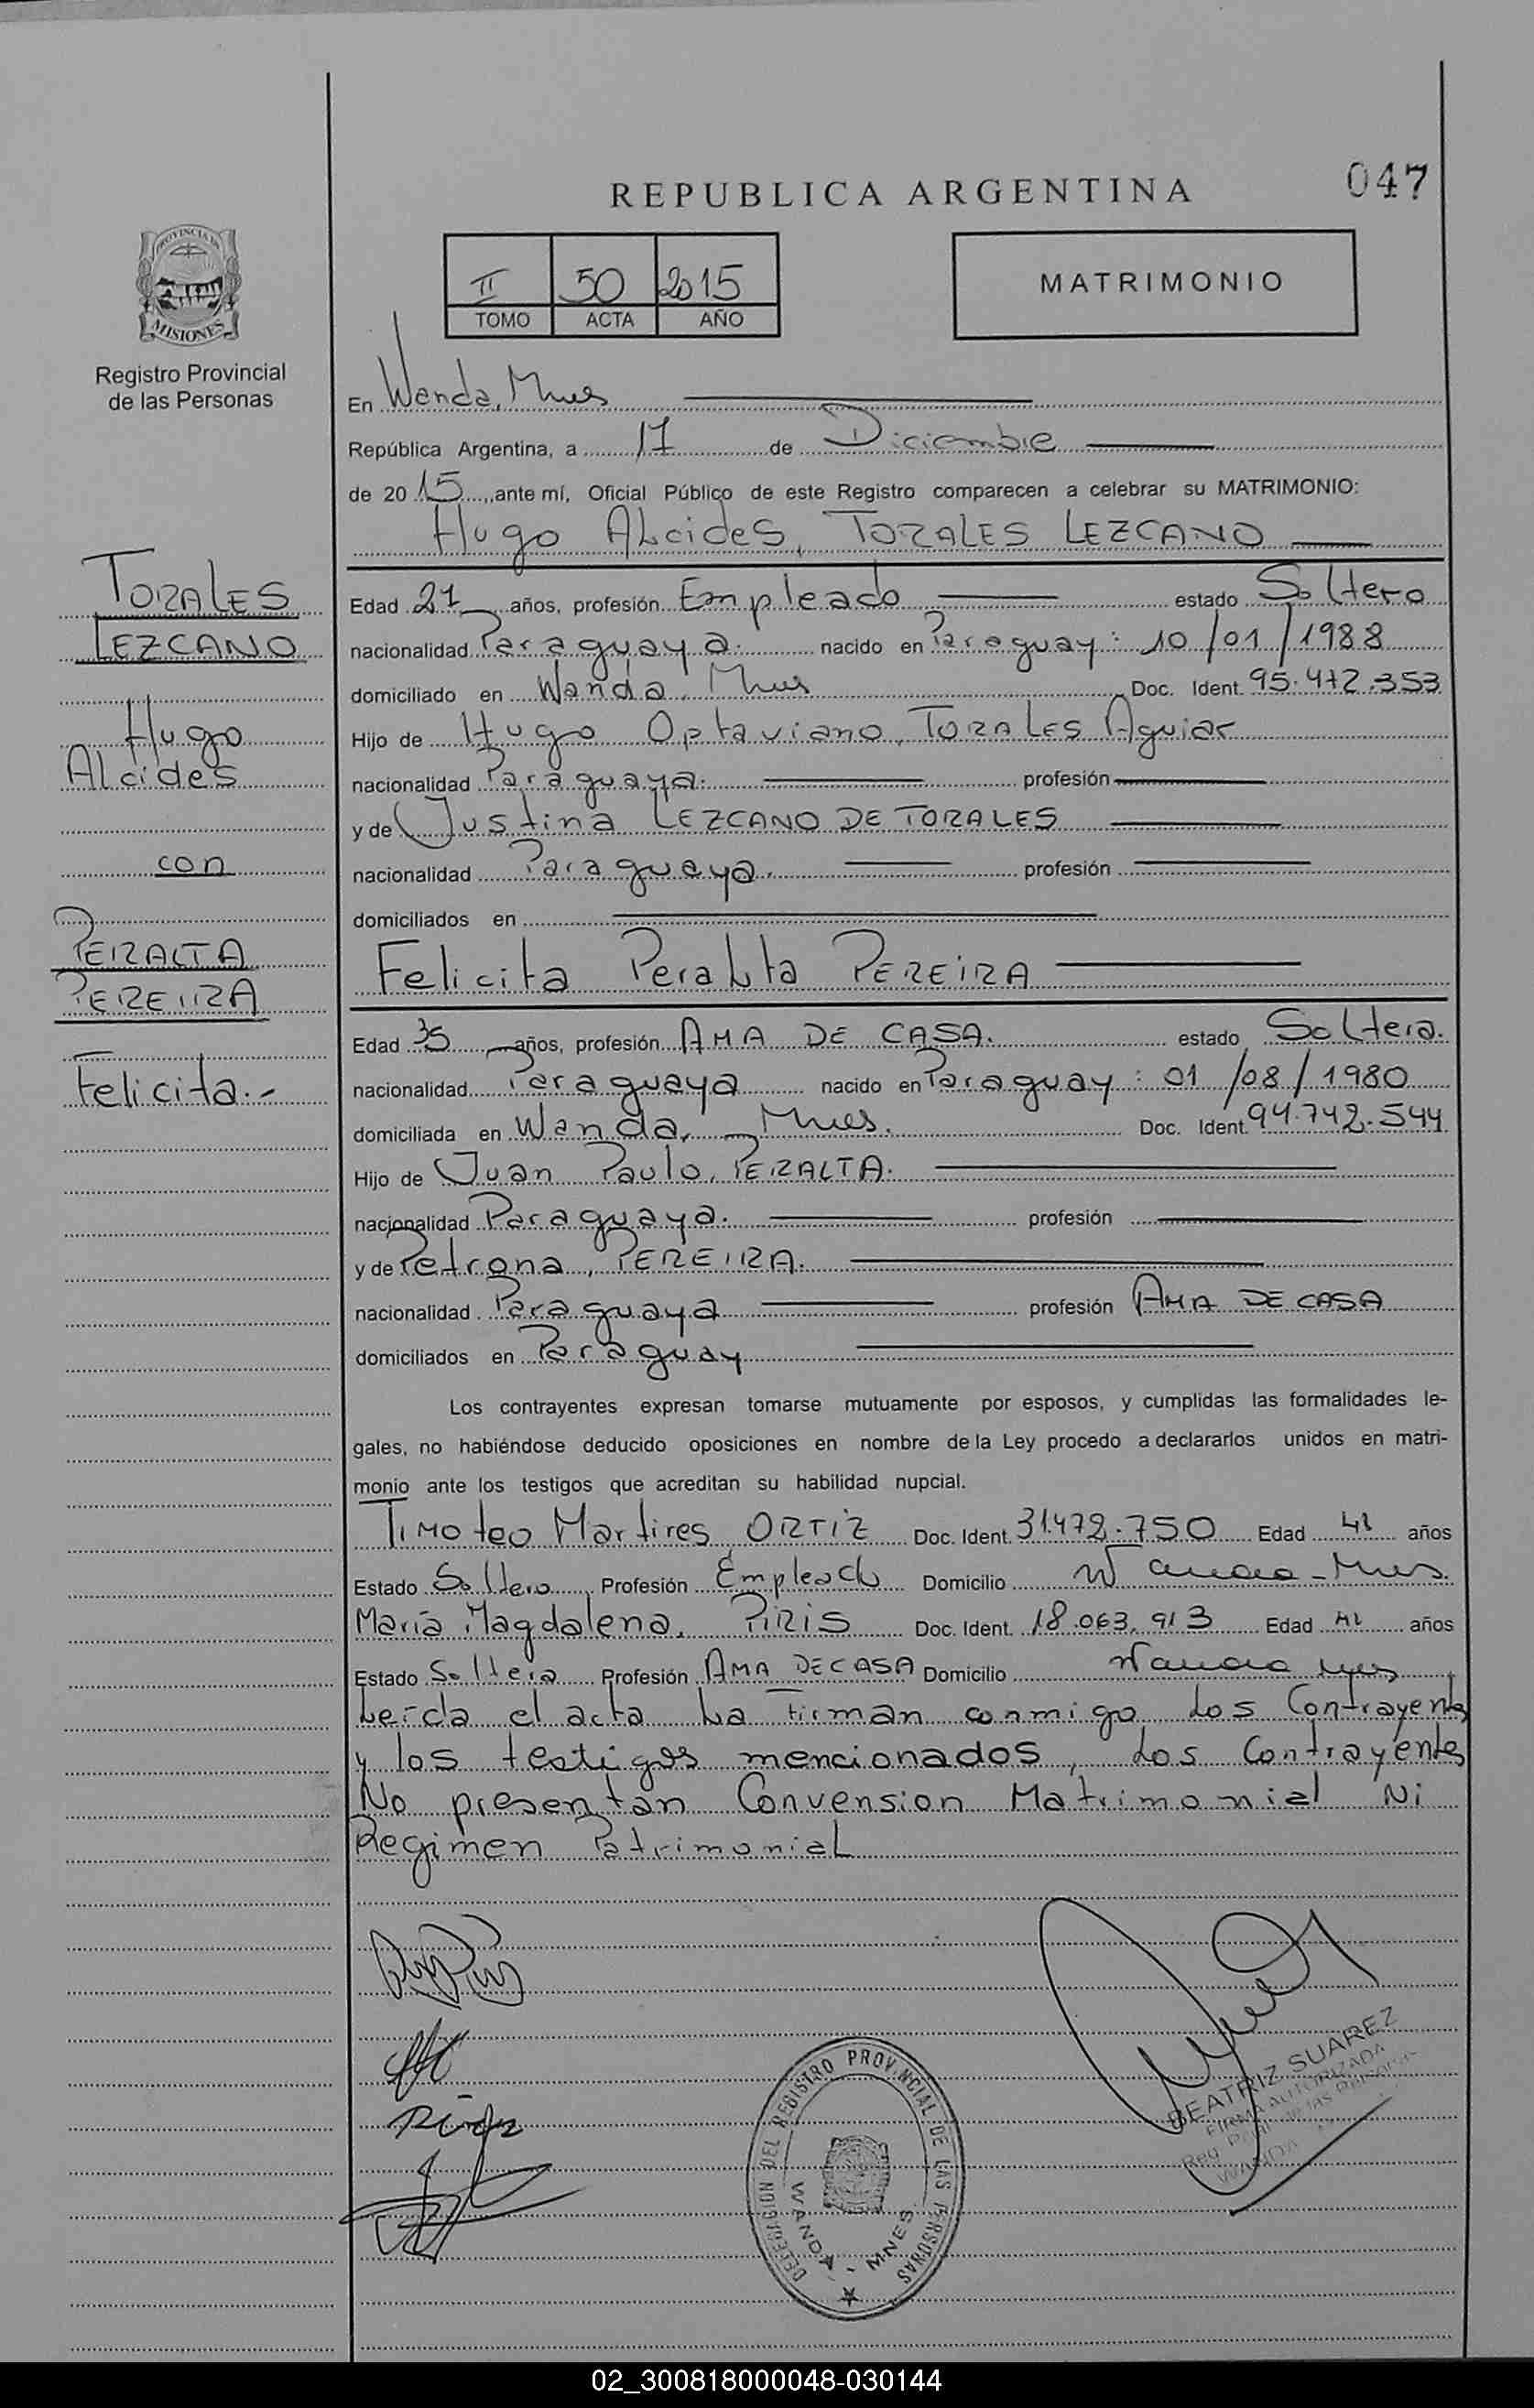 REPUBLICA ARGENTINA
047
PROVINCIA DE
MISIONES
Registro Provincial
de las Personas
II 50 2015
TOMO ACTA AÑO
MATRIMONIO
En Wanda, Mnes
República Argentina, a 17 de Diciembre
de 20 15, ante mí, Oficial Público de este Registro comparecen a celebrar su MATRIMONIO:
Hugo Alcides, TORALES LEZCANO
TORALES
LEZCANO
Hugo
Alcides
con
PERALTA
PEREIRA
Felicita.-
Edad 27 años, profesión Empleado estado Soltero
nacionalidad Paraguaya. nacido en Paraguay: 10/01/1988
domiciliado en Wanda, Mnes Doc. Ident. 95.472.353
Hijo de Hugo Optaviano, TORALES Aguiar
nacionalidad Paraguaya. profesión
y de Justina LEZCANO DE TORALES
nacionalidad Paraguaya. profesión
domiciliados en
Felicita Peralta PEREIRA
Edad 35 años, profesión AMA DE CASA. estado Soltera.
nacionalidad Paraguaya nacido en Paraguay: 01/08/1980
domiciliada en Wanda, Mnes. Doc. Ident. 94.742.544
Hijo de Juan Paulo, PERALTA.
nacionalidad Paraguaya. profesión
y de Petrona, PEREIRA.
nacionalidad Paraguaya profesión AMA DE CASA
domiciliados en Paraguay
Los contrayentes expresan tomarse mutuamente por esposos, y cumplidas las formalidades le-
gales, no habiéndose deducido oposiciones en nombre de la Ley procedo a declararlos unidos en matri-
monio ante los testigos que acreditan su habilidad nupcial.
Timoteo Martires ORTIZ Doc. Ident. 31.472.750 Edad años
Estado Soltero Profesión Empleado Domicilio Wanda-Mnes.
María Magdalena, PIRIS Doc. Ident. 18.063.913 Edad años
Estado Soltera Profesión AMA DE CASA Domicilio Wanda Mnes
Leída el acta La Firman conmigo Los Contrayentes
y los testigos mencionados, Los Contrayentes
No presentan Convension Matrimonial Ni
Regimen Patrimonial
BEATRIZ SUAREZ
FIRMA AUTORIZADA
Reg. Prov. de las Personas
WANDA
DELEGACION DEL REGISTRO PROVINCIAL DE LAS PERSONAS
WANDA - MNES.
02_300818000048-030144